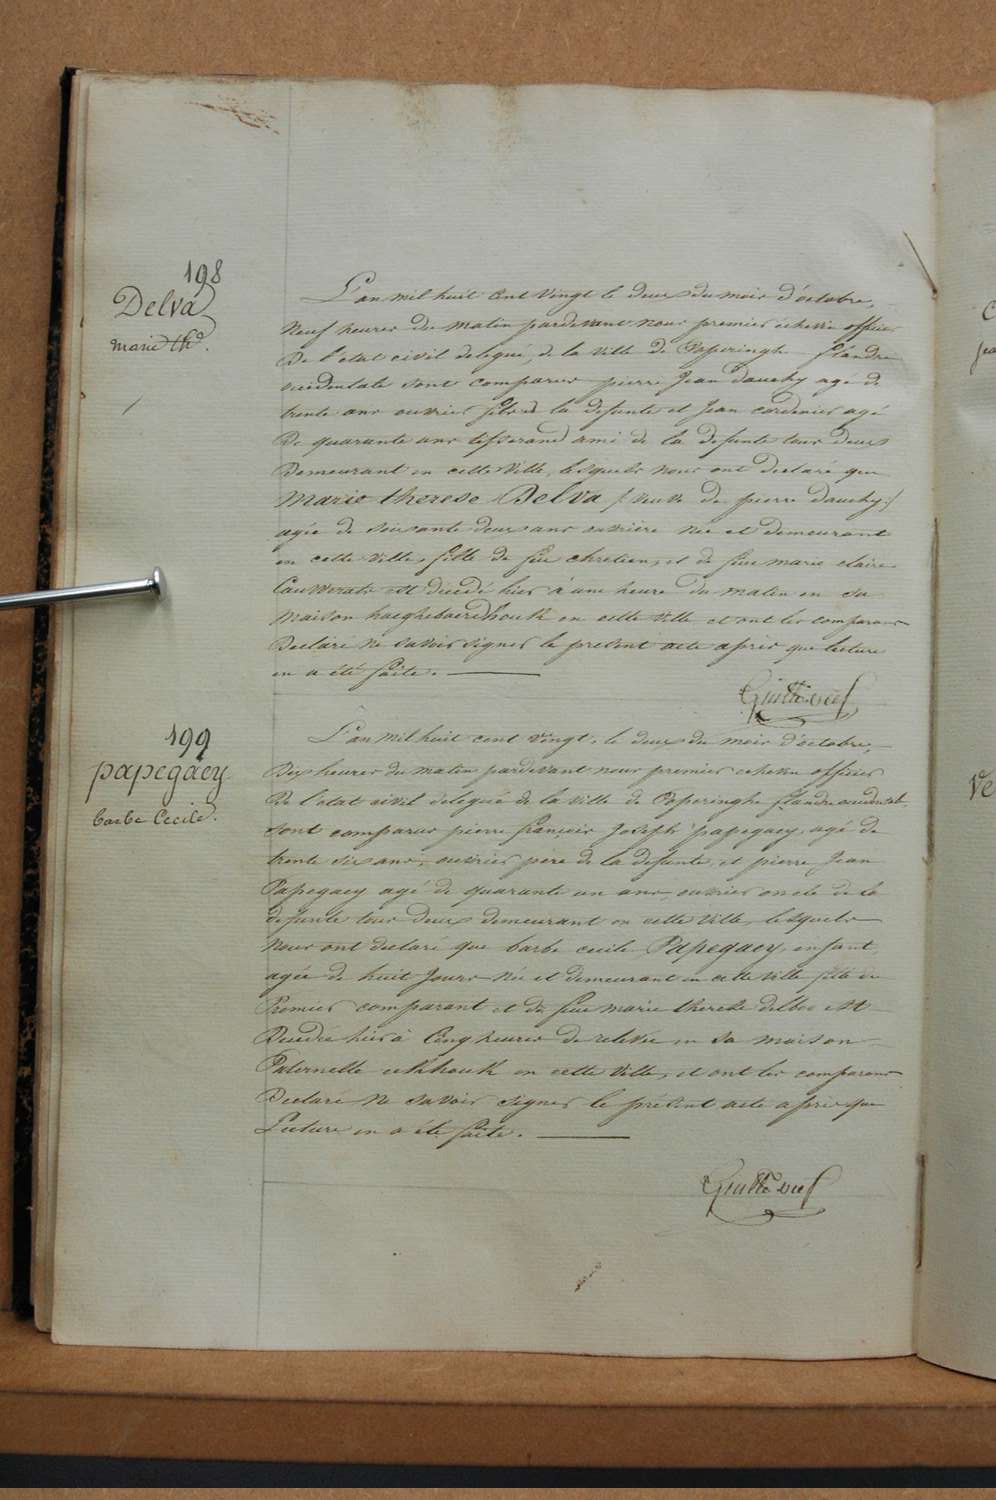 198
Delva
marie thé.
L'an mil huit Cent Vingt le deux du mois d'octobre,
Neuf heures du matin pardevant nous premier échevin officier
De l'etat civil delegué de la ville de Poperinghe flandre
occidentale sont comparus pierre Jean Dauchy agé de
trente ans ouvrier fils de la defunte et Jean cordenier agé
De quarante ans tisserand ami de la defunte tous deux
Demeurant en cette Ville, lesquels nous ont declaré que
Marie therese Delva /: veuve de pierre Dauchy :/
agée de soixante deux ans ouvrière née et demeurant
en cette ville, fille de feu chretien, et de feue marie claire
est décédé hier à une heure du matin en sa
maison haeghebaerdhouk en cette ville et ont les comparans
Declaré ne savoir signer le present acte après que lecture
en a été faite.
199
papegaey
barbe Cecile.
L'an Mil huit cent vingt, le deux du mois d'octobre,
Dix heures du matin pardevant nous premier echevin officier
De l'etat civil delegué de la ville de Poperinghe flandre occidental,
sont comparus pierre françois Joseph papegaey, agé de
trente six ans, ouvrier père de la defunte, et pierre Jean
Papegaey agé de quarante un ans, ouvrier oncle de la
defunte tous deux demeurant en cette Ville, lesquels
Nous ont declaré que barbe cecile Papegaey, enfant,
agée de huit Jours née et demeurant en cette ville fille du
Premier comparant et de feue marie therese delboo est
Décédée hier à Cinq heures de relevée en sa maison
Paternelle ekhouk en cette ville, et ont les comparans
Declaré Ne savoir signer le présent acte après que
Lecture en a été faite.